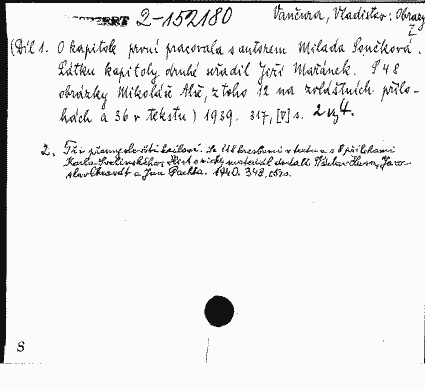 2-152180 Vančura, Vladislav: Obrazy z
(Díl 1. O kapitole první pracovala s autorem Milada Součková.
Látku kapitoly druhé uřadil Jiří Mařánek. S 48
obrázky Mikoláše Alše, z toho 12 na zvláštních přílo-
hách a 36 v textu) 1939. 317, [V] s. 2 v, 4.
2. Tři přemyslovští králové. Se 118 kresbami v textu a s 8 přílohami
Karla Svolinského. Historický materiál dodali Václav Husa, Jaro-
slav Charvát a Jan Pachta. 1940. 348,
S